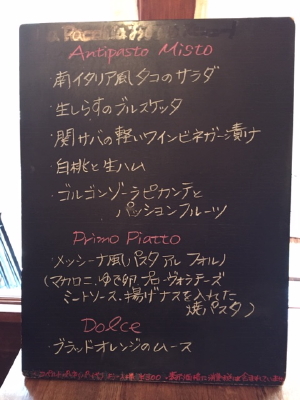 Antipasto Misto
・南イタリア風タコのサラダ
・生しらすのブルスケッタ
・関サバの軽いワインビネガー漬け
・白桃と生ハム
・ゴルゴンゾーラピカンテと
パッションフルーツ
Primo Piatto
・メッシーナ風パスタ アル フォルノ
(マカロニ、ゆで卵 プローヴォラチーズ
ミートソース、揚げナスを入れた
焼パスタ)
Dolce
・ブラッドオレンジのムース